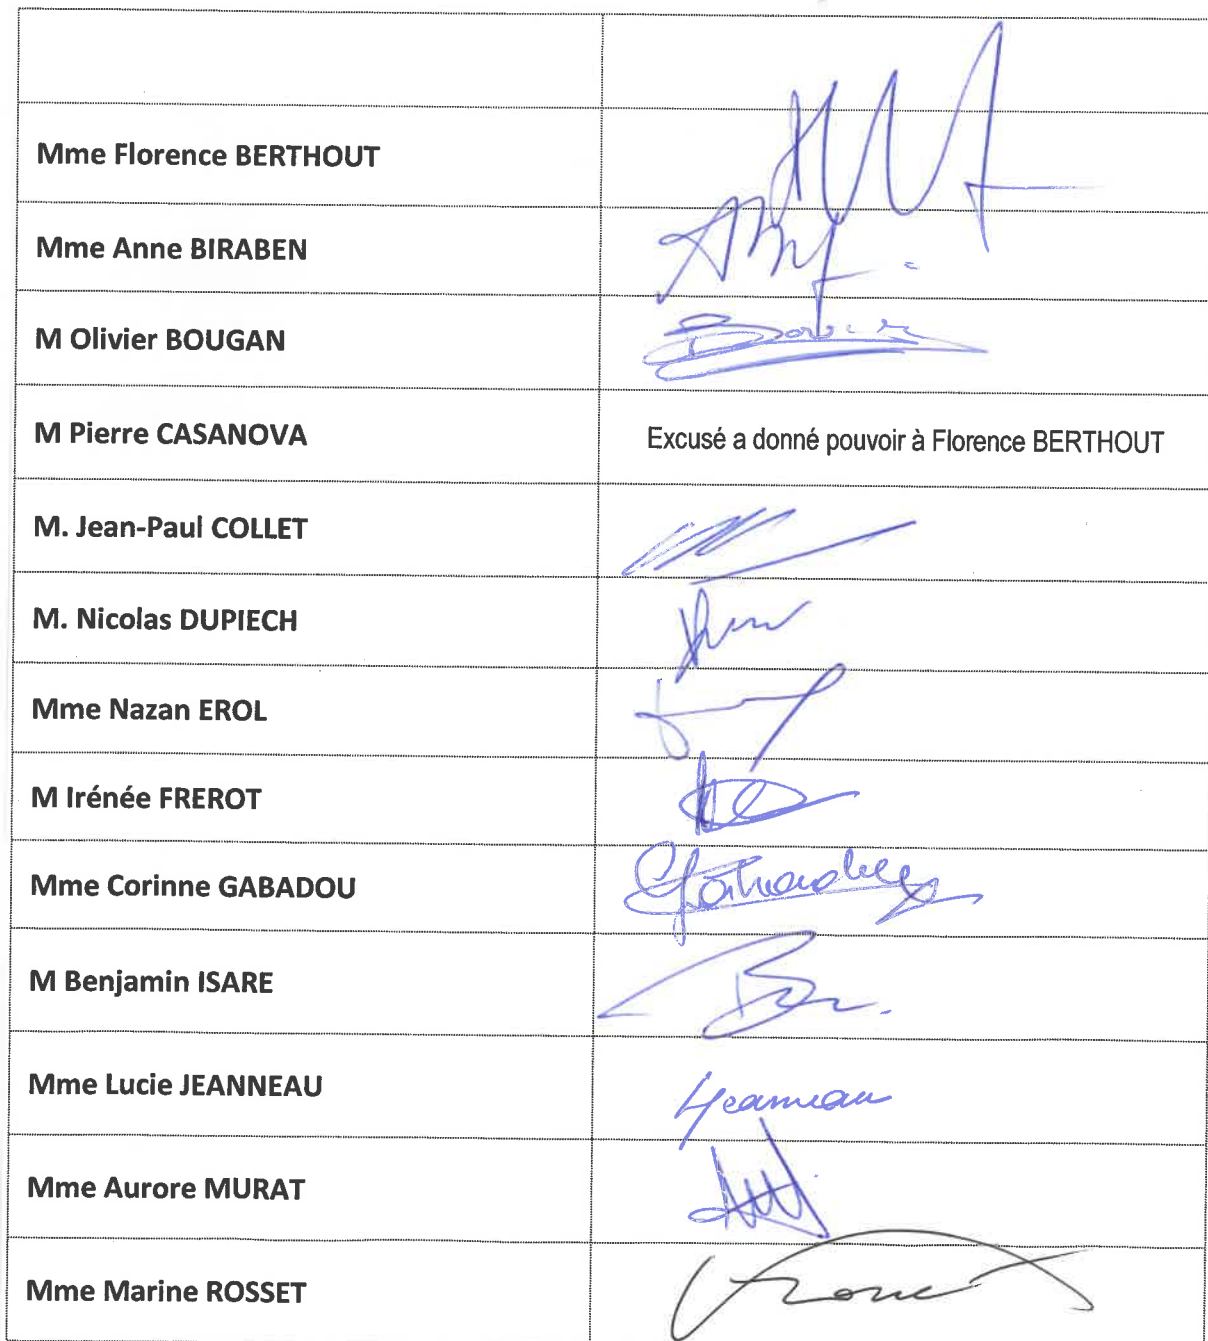 Mme Florence BERTHOUT
Mme Anne BIRABEN
M Olivier BOUGAN
M Pierre CASANOVA
Excusé a donné pouvoir à Florence BERTHOUT
M. Jean-Paul COLLET
M. Nicolas DUPIECH
Mme Nazan EROL
M Irénée FREROT
Mme Corinne GABADOU
M Benjamin ISARE
Mme Lucie JEANNEAU
Mme Aurore MURAT
Mme Marine ROSSET